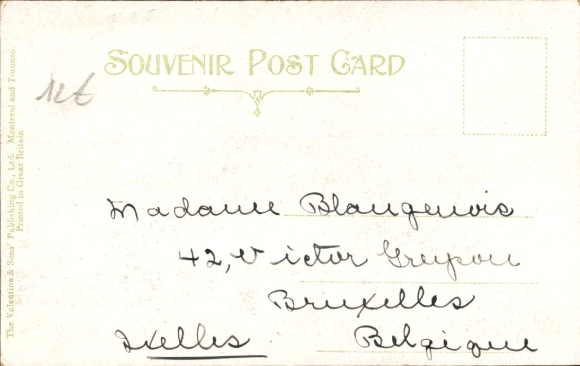 SOUVENIR POST CARD
Madame Blangenois
42, Victor Greyson
Bruxelles
Ixelles Belgique
The Valentine & Sons' Publishing Co., Ltd. Montreal and Toronto
Printed in Great Britain